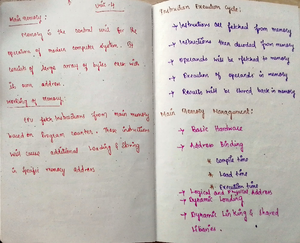 Unit-4
Main Memory:
Memory is the central unit for the
operation of modern computer system. It
consist of large array of bytes each with
its own address.
Working of Memory:
CPU fetch instructions from main memory
based on Program counter. These instructions
will cause additional Loading & Storing
in specific memory address
Instruction Execution Cycle:
→ Instructions are fetched from memory
→ Instructions then decoded from memory
→ Operands will be fetched to memory
→ Execution of operands in memory
→ Results will be stored back in memory
Main Memory Management:
→ Basic Hardware
→ Address Binding
Compile time
Load time
Execution time
→ Logical and Physical Address
→ Dynamic Loading
→ Dynamic Linking & Shared
Libraries.